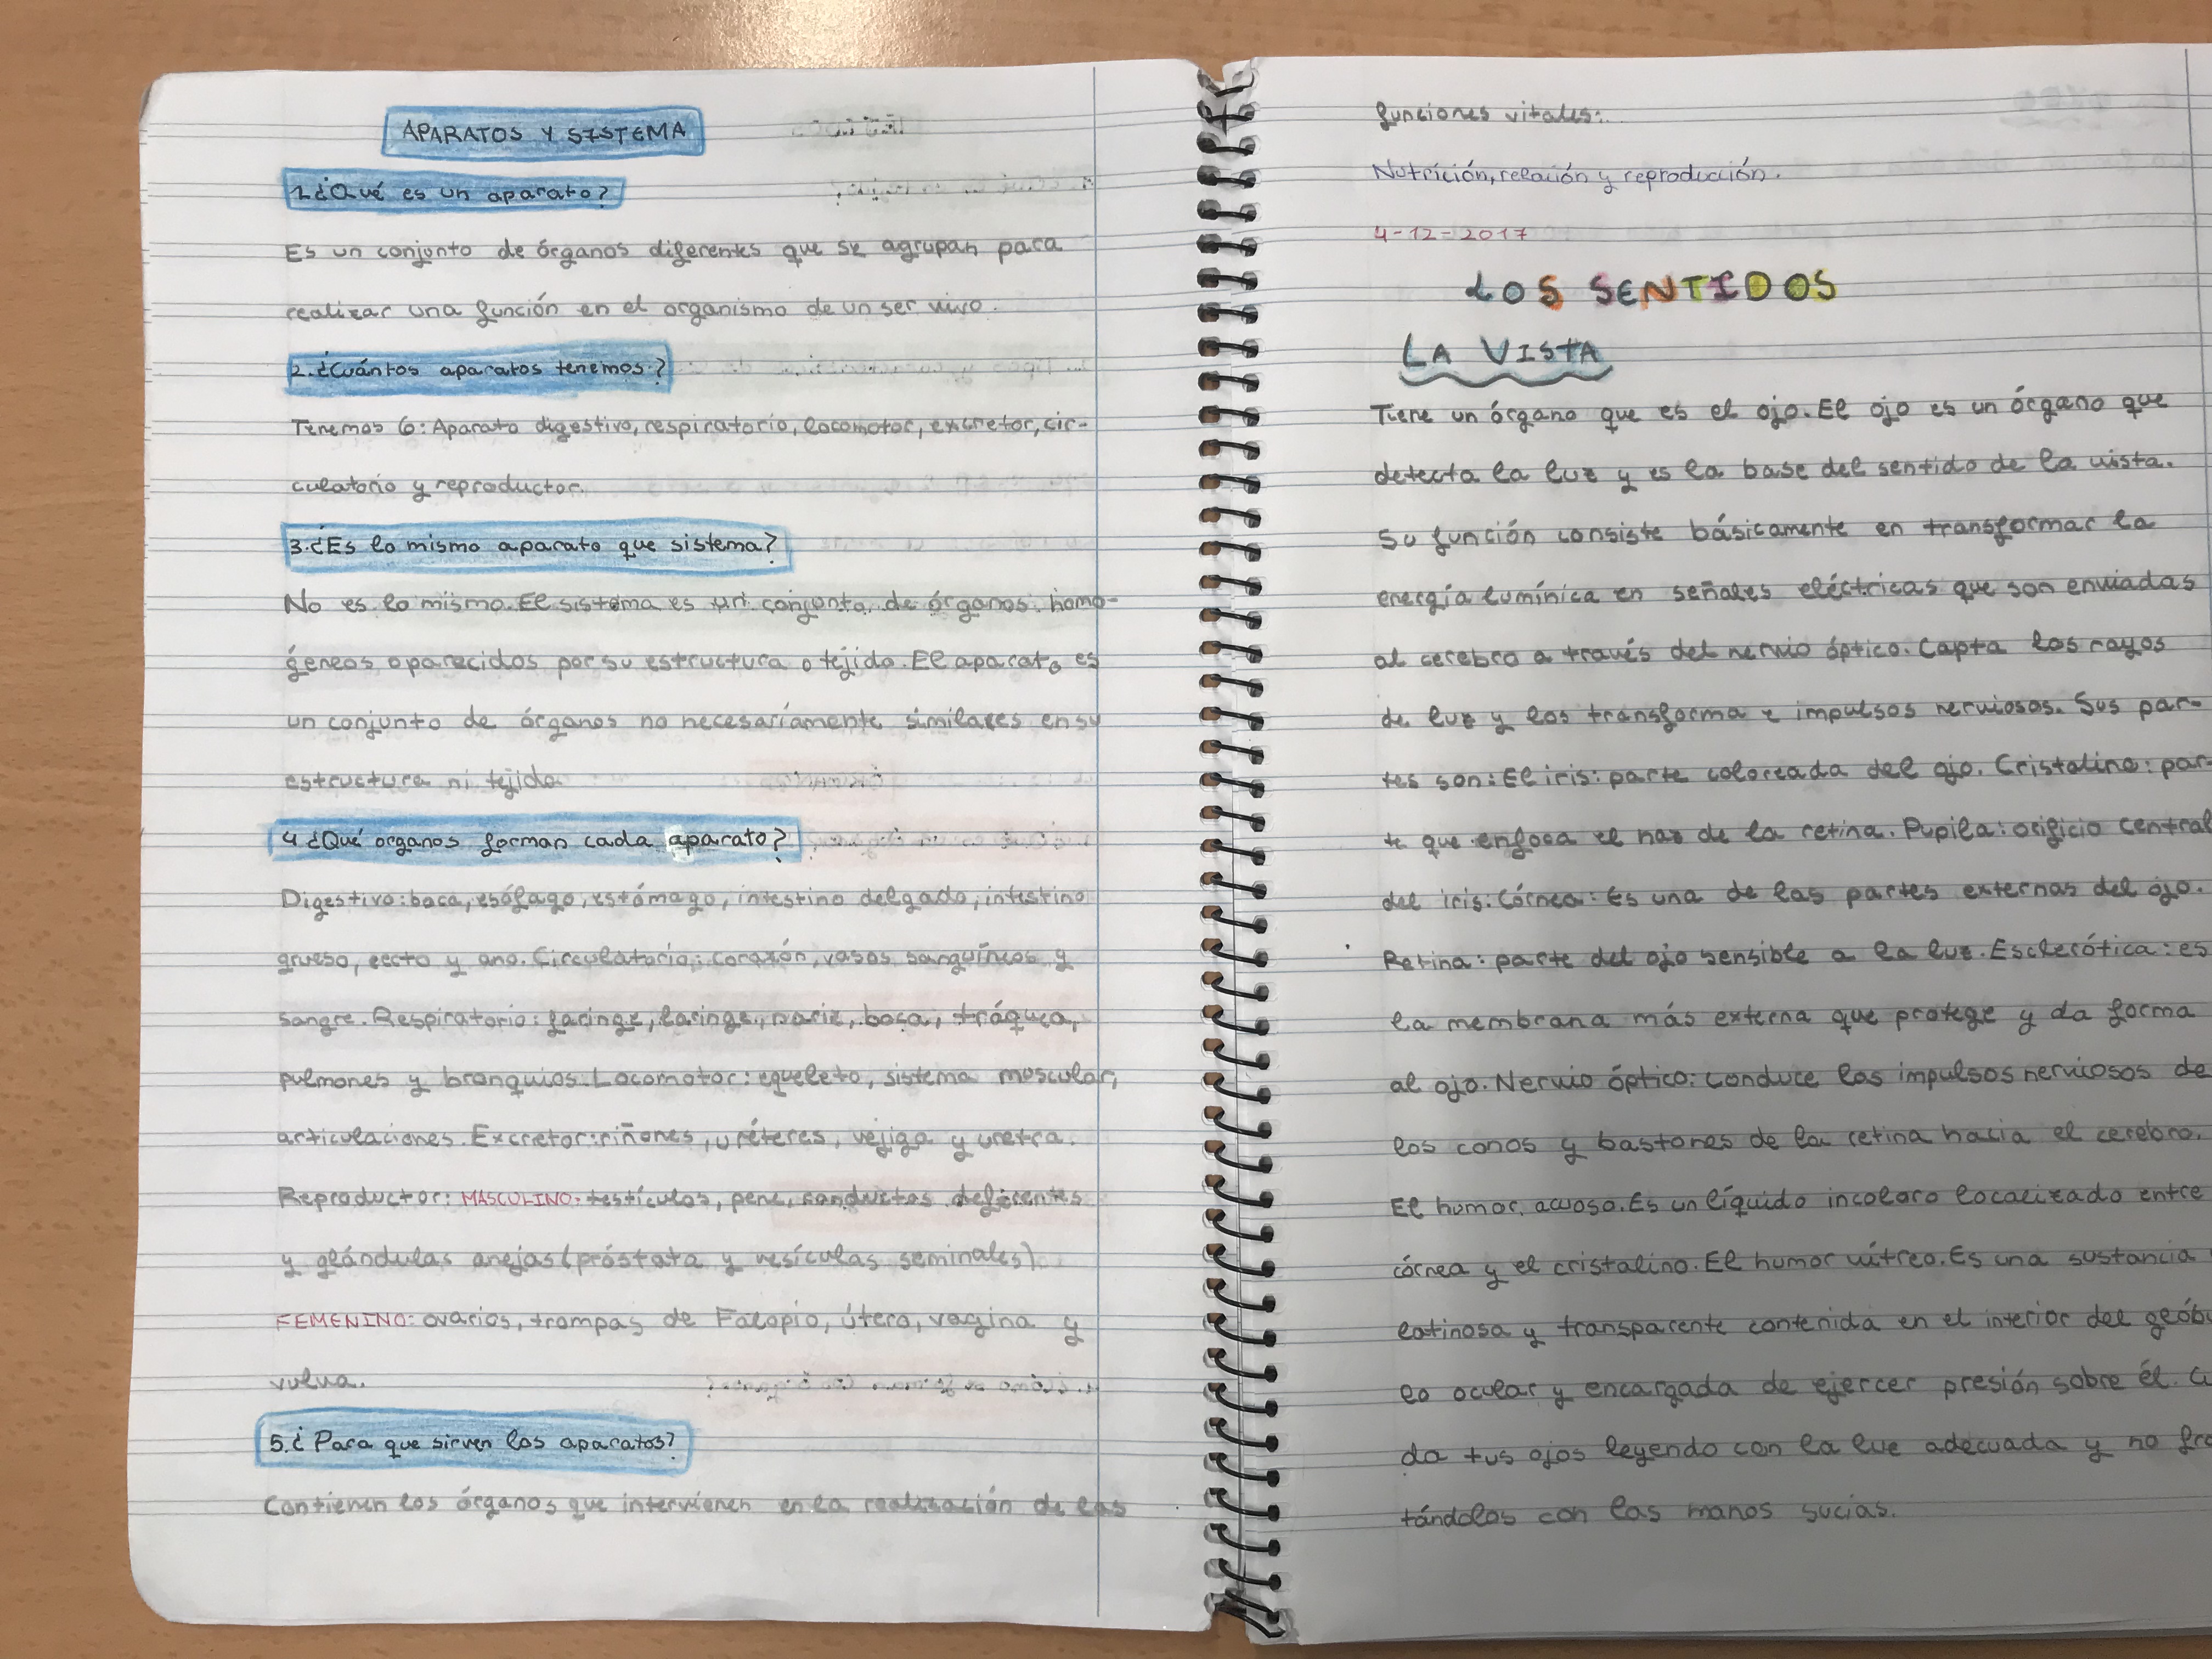 APARATOS Y SISTEMA
1.¿Qué es un aparato?
Es un conjunto de órganos diferentes que se agrupan para
realizar una función en el organismo de un ser vivo.
2.¿Cuántos aparatos tenemos?
Tenemos 6: Aparato digestivo, respiratorio, locomotor, excretor, cir-
culatorio y reproductor.
3.¿Es lo mismo aparato que sistema?
No es lo mismo. El sistema es un conjunto de órganos homo-
géneos oparecidos por su estructura o tejido. El aparato es
un conjunto de órganos no necesaríamente similares en su
estructura ni tejido
4 ¿Qué organos forman cada aparato?
Digestivo: boca, esófago, estómago, intestino delgado, intestino
grueso, recto y ano. Circulatorio: corazón, vasos sanguíneos y
sangre. Respiratorio: faringe, laringe, nariz, boca, tráquea,
pulmones y branquios. Locomotor: equeleto, sistema muscular,
articulaciones. Excretor: riñones, uréteres, vejiga y uretra.
Reproductor: MASCULINO: testículos, pene, conductos deferentes
y glándulas anejas (próstata y vesículas seminales)
FEMENINO: ovarios, trompas de Falopio, útero, vagina y
vulva.
5.¿Para que sirven los aparatos?
Contienen los órganos que intervienen en la realización de las
funciones vitales:
Nutrición, relación y reproducción.
4-12-2017
LOS SENTIDOS
LA VISTA
Tiene un órgano que es el ojo. El ojo es un órgano que
detecta la luz y es la base del sentido de la vista.
Su función consiste básicamente en transformar la
energía lumínica en señales eléctricas que son enviadas
al cerebro a través del nervio óptico. Capta los rayos
de luz y los transforma e impulsos nerviosos. Sus par-
tes son: El iris: parte coloreada del ojo. Cristalino: par-
te que enfoca el haz de la retina. Pupila: orificio central
del iris. Córnea: Es una de las partes externas del ojo.
Retina: parte del ojo sensible a la luz. Esclerótica: es
la membrana más externa que protege y da forma
al ojo. Nervio óptico: conduce los impulsos nerviosos de
los conos y bastones de la retina hacia el cerebro.
El humor acuoso. Es un líquido incoloro localizado entre
córnea y el cristalino. El humor vítreo. Es una sustancia
latinosa y transparente contenida en el interior del glóbu
lo ocular y encargada de ejercer presión sobre él. Cu
da tus ojos leyendo con la luz adecuada y no fro
tándolos con las manos sucias.